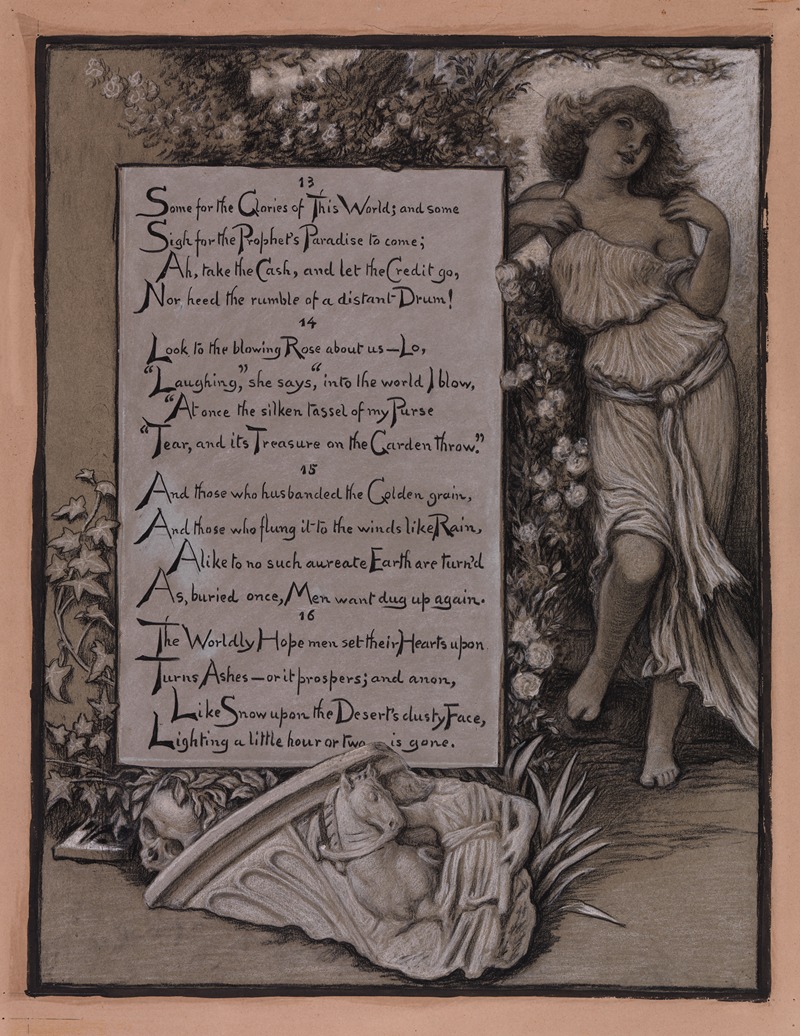 13
Some for the Glories of This World; and some
Sigh for the Prophet's Paradise to come;
Ah, take the Cash, and let the Credit go,
Nor heed the rumble of a distant Drum!
14
Look to the blowing Rose about us—Lo,
"Laughing," she says, "into the world I blow,
"At once the silken tassel of my Purse
"Tear, and its Treasure on the Garden throw."
15
And those who husbanded the Golden grain,
And those who flung it to the winds like Rain,
Alike to no such aureate Earth are turn'd
As, buried once, Men want dug up again.
16
The Worldly Hope men set their Hearts upon
Turns Ashes—or it prospers; and anon,
Like Snow upon the Desert's dusty Face,
Lighting a little hour or two—is gone.